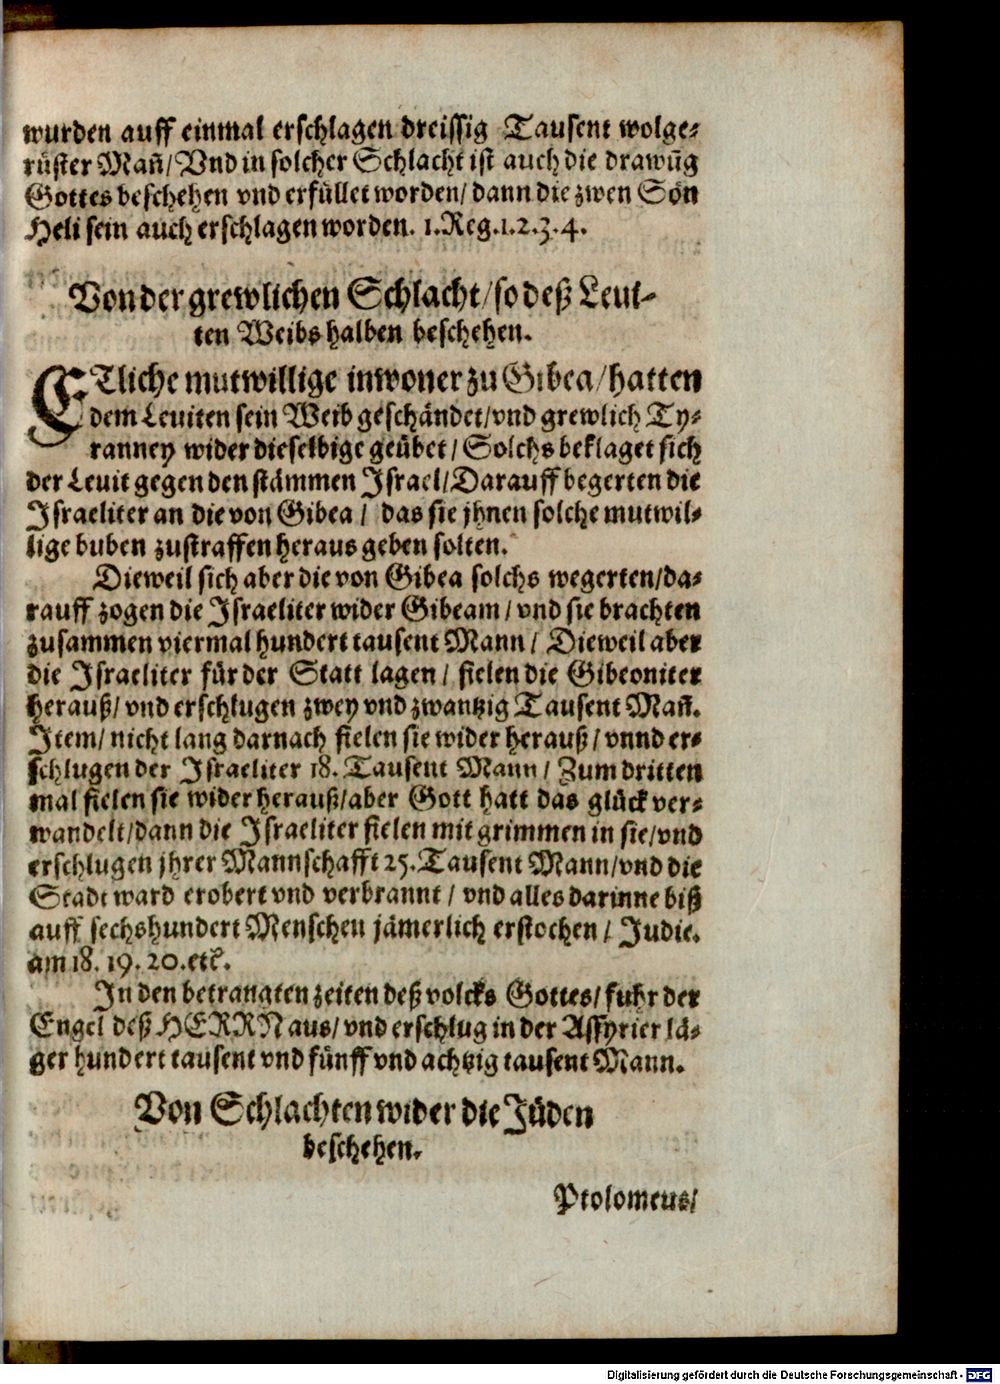 wurden auff einmal erschlagen dreissig Tausent wolge⸗
rüster Mañ/ Vnd in solcher Schlacht ist auch die drawũg
Gottes beschehen vnd erfüllet worden/ dann die zwen Sön
Heli sein auch erschlagen worden. 1.Reg.1.2.3.4.
Von der grewlichen Schlacht/ so deß Leui⸗
ten Weibs halben beschehen.
ETliche mutwillige inwoner zu Gibea/ hatten
dem Leuiten sein Weib geschändet/ vnd grewlich Ty⸗
ranney wider dieselbige geübet/ Solchs beklaget sich
der Leuit gegen den stämmen Israel/ Darauff begerten die
Israeliter an die von Gibea/ das sie jhnen solche mutwil⸗
lige buben zustraffen heraus geben solten.
Dieweil sich aber die von Gibea solchs wegerten/ da⸗
rauff zogen die Israeliter wider Gibeam/ vnd sie brachten
zusammen viermal hundert tausent Mann/ Dieweil aber
die Israeliter für der Statt lagen/ fielen die Gibeoniter
herauß/ vnd erschlugen zwey vnd zwantzig Tausent Mañ.
Item/ nicht lang darnach fielen sie wider herauß/ vnnd er⸗
schlugen der Israeliter 18. Tausent Mann/ Zum dritten
mal fielen sie wider herauß/ aber Gott hatt das glück ver⸗
wandelt/ dann die Israeliter fielen mit grimmen in sie/ vnd
erschlugen jhrer Mannschafft 25. Tausent Mann/ vnd die
Stadt ward erobert vnd verbrannt/ vnd alles darinne biß
auff sechshundert Menschen jämerlich erstochen/ Judic.
am 18. 19. 20. etc.
In den betrangten zeiten deß volcks Gottes/ fuhr der
Engel deß HERRN aus/ vnd erschlug in der Assyrier lä⸗
ger hundert tausent vnd fünff vnd achtzig tausent Mann.
Von Schlachten wider die Jüden
beschehen.
Ptolomeus/
Digitalisierung gefördert durch die Deutsche Forschungsgemeinschaft - DFG